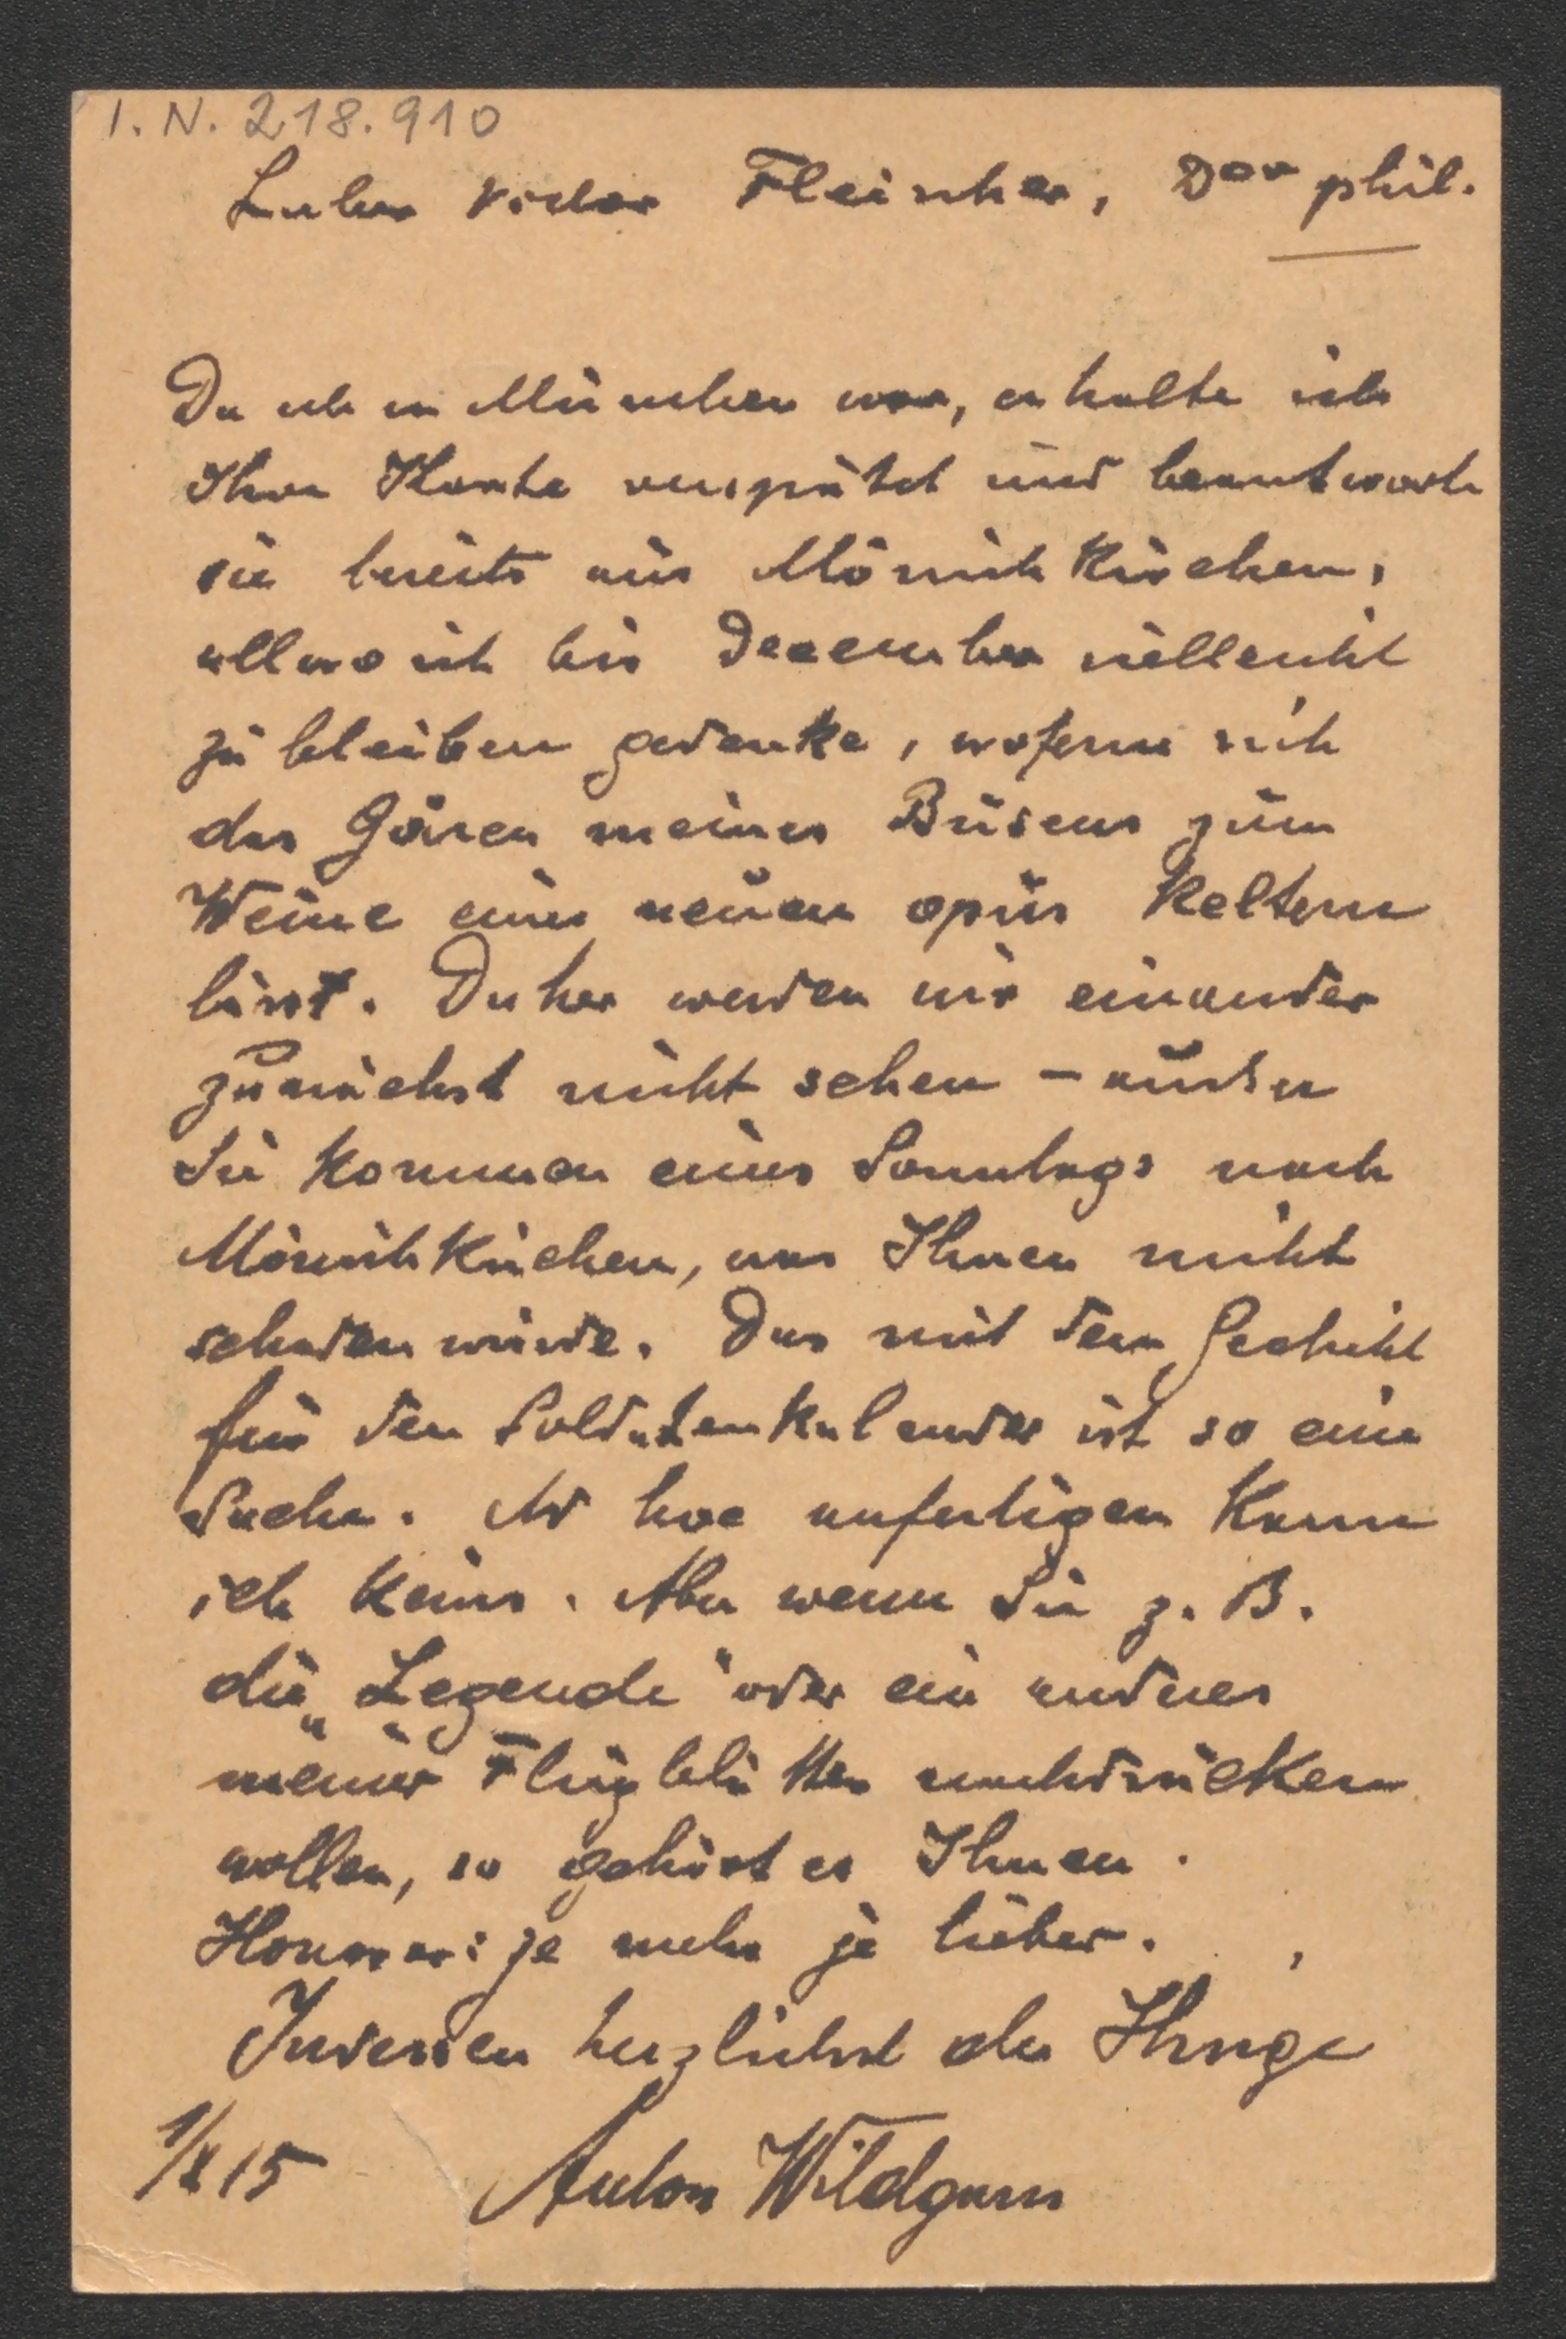 I. N. 218.910
Lieber Victor Fleischer, Dor phil.
Da ich in München war, erhalte ich
Ihre Karte verspätet und beantworte
sie bereits aus Mönichkirchen,
allwo ich bis December vielleicht
zu bleiben gedenke, woferne sich
das Gären meines Busens zum
Weine eines neuen opus keltern
lässt. Daher werden wir einander
zunächst nicht sehen – ausser
Sie kommen eines Sonntags nach
Mönichkirchen, was Ihnen nicht
schaden würde. Das mit dem Gedicht
für den Soldatenkalender ist so eine
Sache. Ad hoc anfertigen kann
ich keins. Aber wenn Sie z. B.
die „Legende“ oder ein anderes
meiner Flugblätter nachdrucken
wollen, so gehört es Ihnen.
Honorar: je mehr je lieber.
Indessen herzlichst der Ihrige
1/X 15 Anton Wildgans